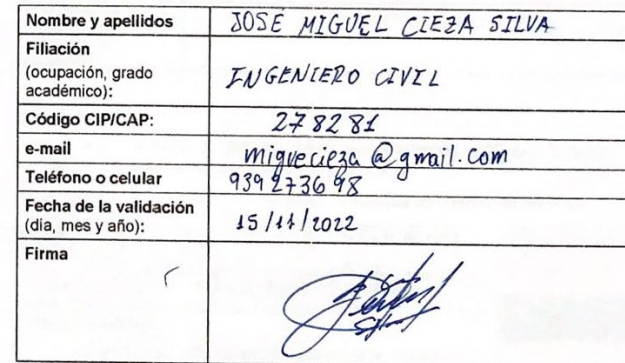 Nombre y apellidos JOSE MIGUEL CIEZA SILVA
Filiación
(ocupación, grado
académico): INGENIERO CIVIL
Código CIP/CAP: 278281
e-mail miguecieza@gmail.com
Teléfono o celular 939273698
Fecha de la validación
(día, mes y año): 15/11/2022
Firma